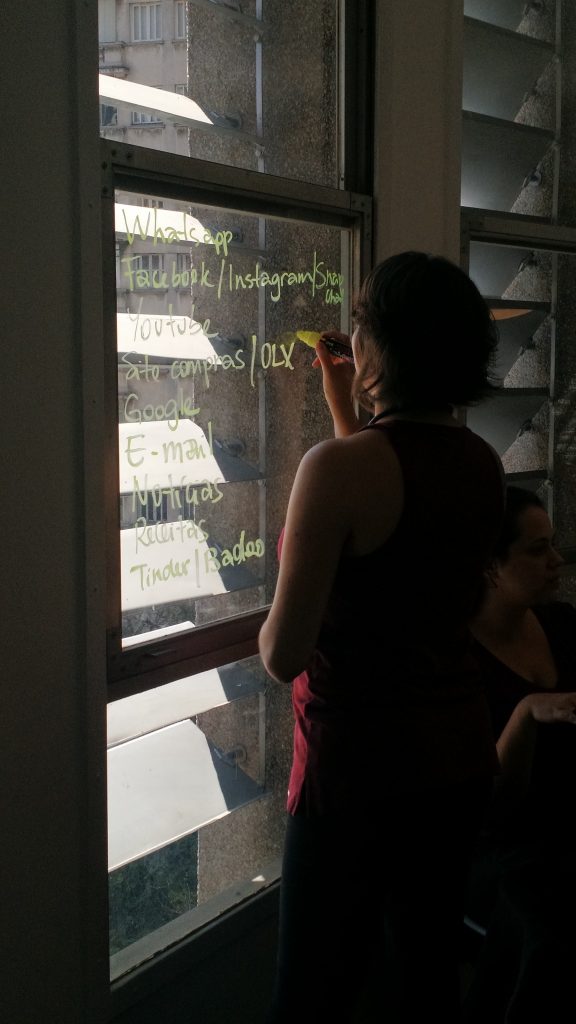 Whatsapp
Facebook/Instagram/Snap
chat
Youtube
Site compras/OLX
Google
E-mail
Notícias
Receitas
Tinder/Badoo